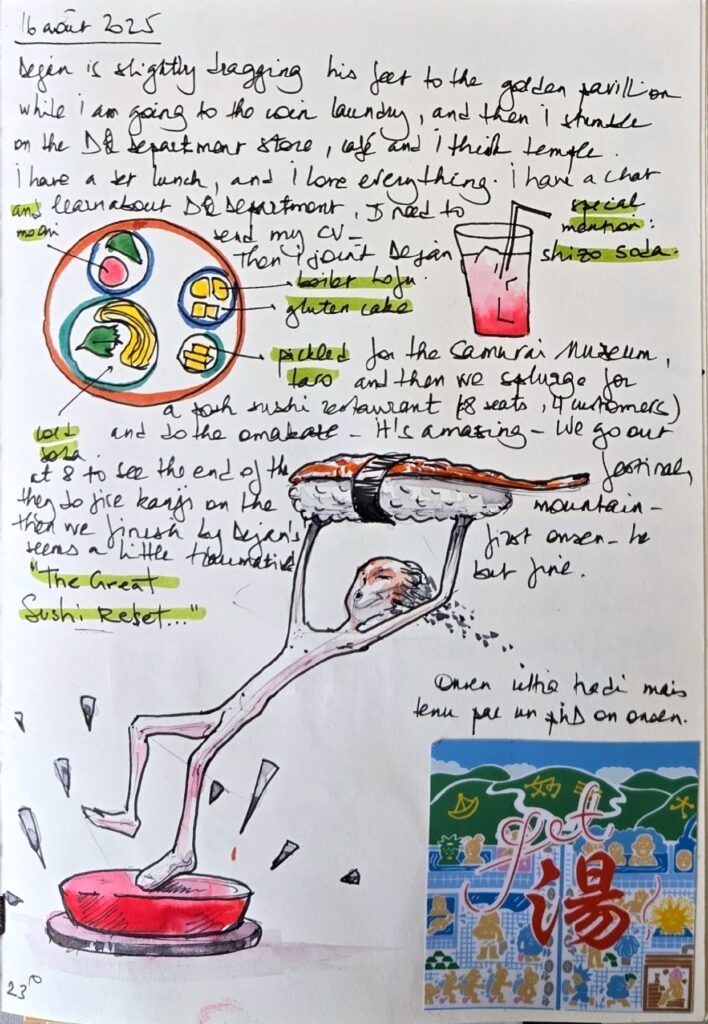 16 août 2025
Dejan is slightly dragging his feet to the golden pavillion
while i am going to the coin laundry, and then i stumble
on the D& department store, café and i think temple.
i have a set lunch, and i love everything. i have a chat
and learn about D& Department. I need to
send my CV-
special
mention:
shizo soda.
mochi
Then i joint Dejan
boiled tofu
gluten cake
pickled
taro
for the Samurai Museum,
and then we splurge for
a posh sushi restaurant (8 seats, 4 customers)
cold
soba
and do the omakase - It's amazing - We go out
at 8 to see the end of the festival,
they do fire kanji on the mountain -
then we finish by Dejan's first onsen - he
seems a little traumatized but fine.
"The Great
Sushi Reset..."
Onsen ultra tradi mais
tenu par un phD en onsen.
get
湯
23